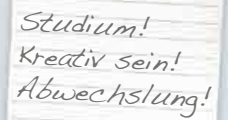 Studium!
Kreativ sein!
Abwechslung!